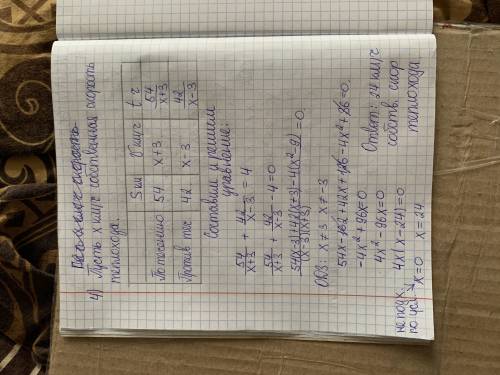 4) Пусть x км/ч собственная скорость
теплохода.
S км V км/ч t ч
По течению 54 x+3 54/(x+3)
Против теч 42 x-3 42/(x-3)
Составим и решим
уравнение:
54/(x+3) + 42/(x-3) = 4
54/(x+3) + 42/(x-3) - 4=0
(54(x-3)+42(x+3)-4(x²-9))/((x-3)(x+3)) = 0
ОДЗ: x≠3 x≠-3
54x-162+42x+126-4x²+36=0.
-4x²+96x=0
4x²-96x=0
4x(x-24)=0
x=0 x=24
не подх.
по усл
Ответ: 24 км/ч
собств. скор
теплохода